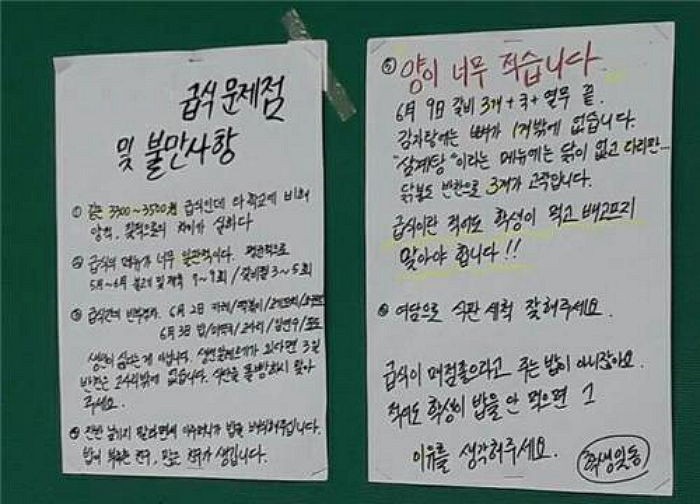 급식 문제점
및 불만사항
① 같은 3300~3500원 급식인데 타 학교에 비해
양적, 질적으로의 차이가 심하다
② 급식의 메뉴가 너무 일관적이다. 평균적으로
5월~6월 불고기 및 제육 7~9회 / 갈비찜 3~5회
③ 6월 2일 카레/떡볶이/
6월 3일 밥/미역국/
생선이 싫다는게 아닙니다. 생선 있다면 3일
반찬은 고사리밖에 없습니다. 식단을 맞아
주세요.
④ 잔반 남기지 말라면서 밥을 
밥이 부족한 친구, 많은 친구가 생깁니다.
⑤ 양이 너무 적습니다
6월 9일 갈비 3개 + 국 + 열무 끝.
감자탕에는 뼈가 1개밖에 없습니다.
"삼계탕"이라는 메뉴에는 닭이 없고 다리만...
닭봉도 반찬으로 3개가 고작입니다.
급식이란 적어도 학생이 먹고 배고프지
않아야 합니다!!
⑥ 여담으로 식판 세척 잘해주세요.
급식이 매점좋으라고 주는 밥이 아니잖아요.
적어도 학생이 밥을 안 먹으면 그
이유를 생각해주세요.
학생일동